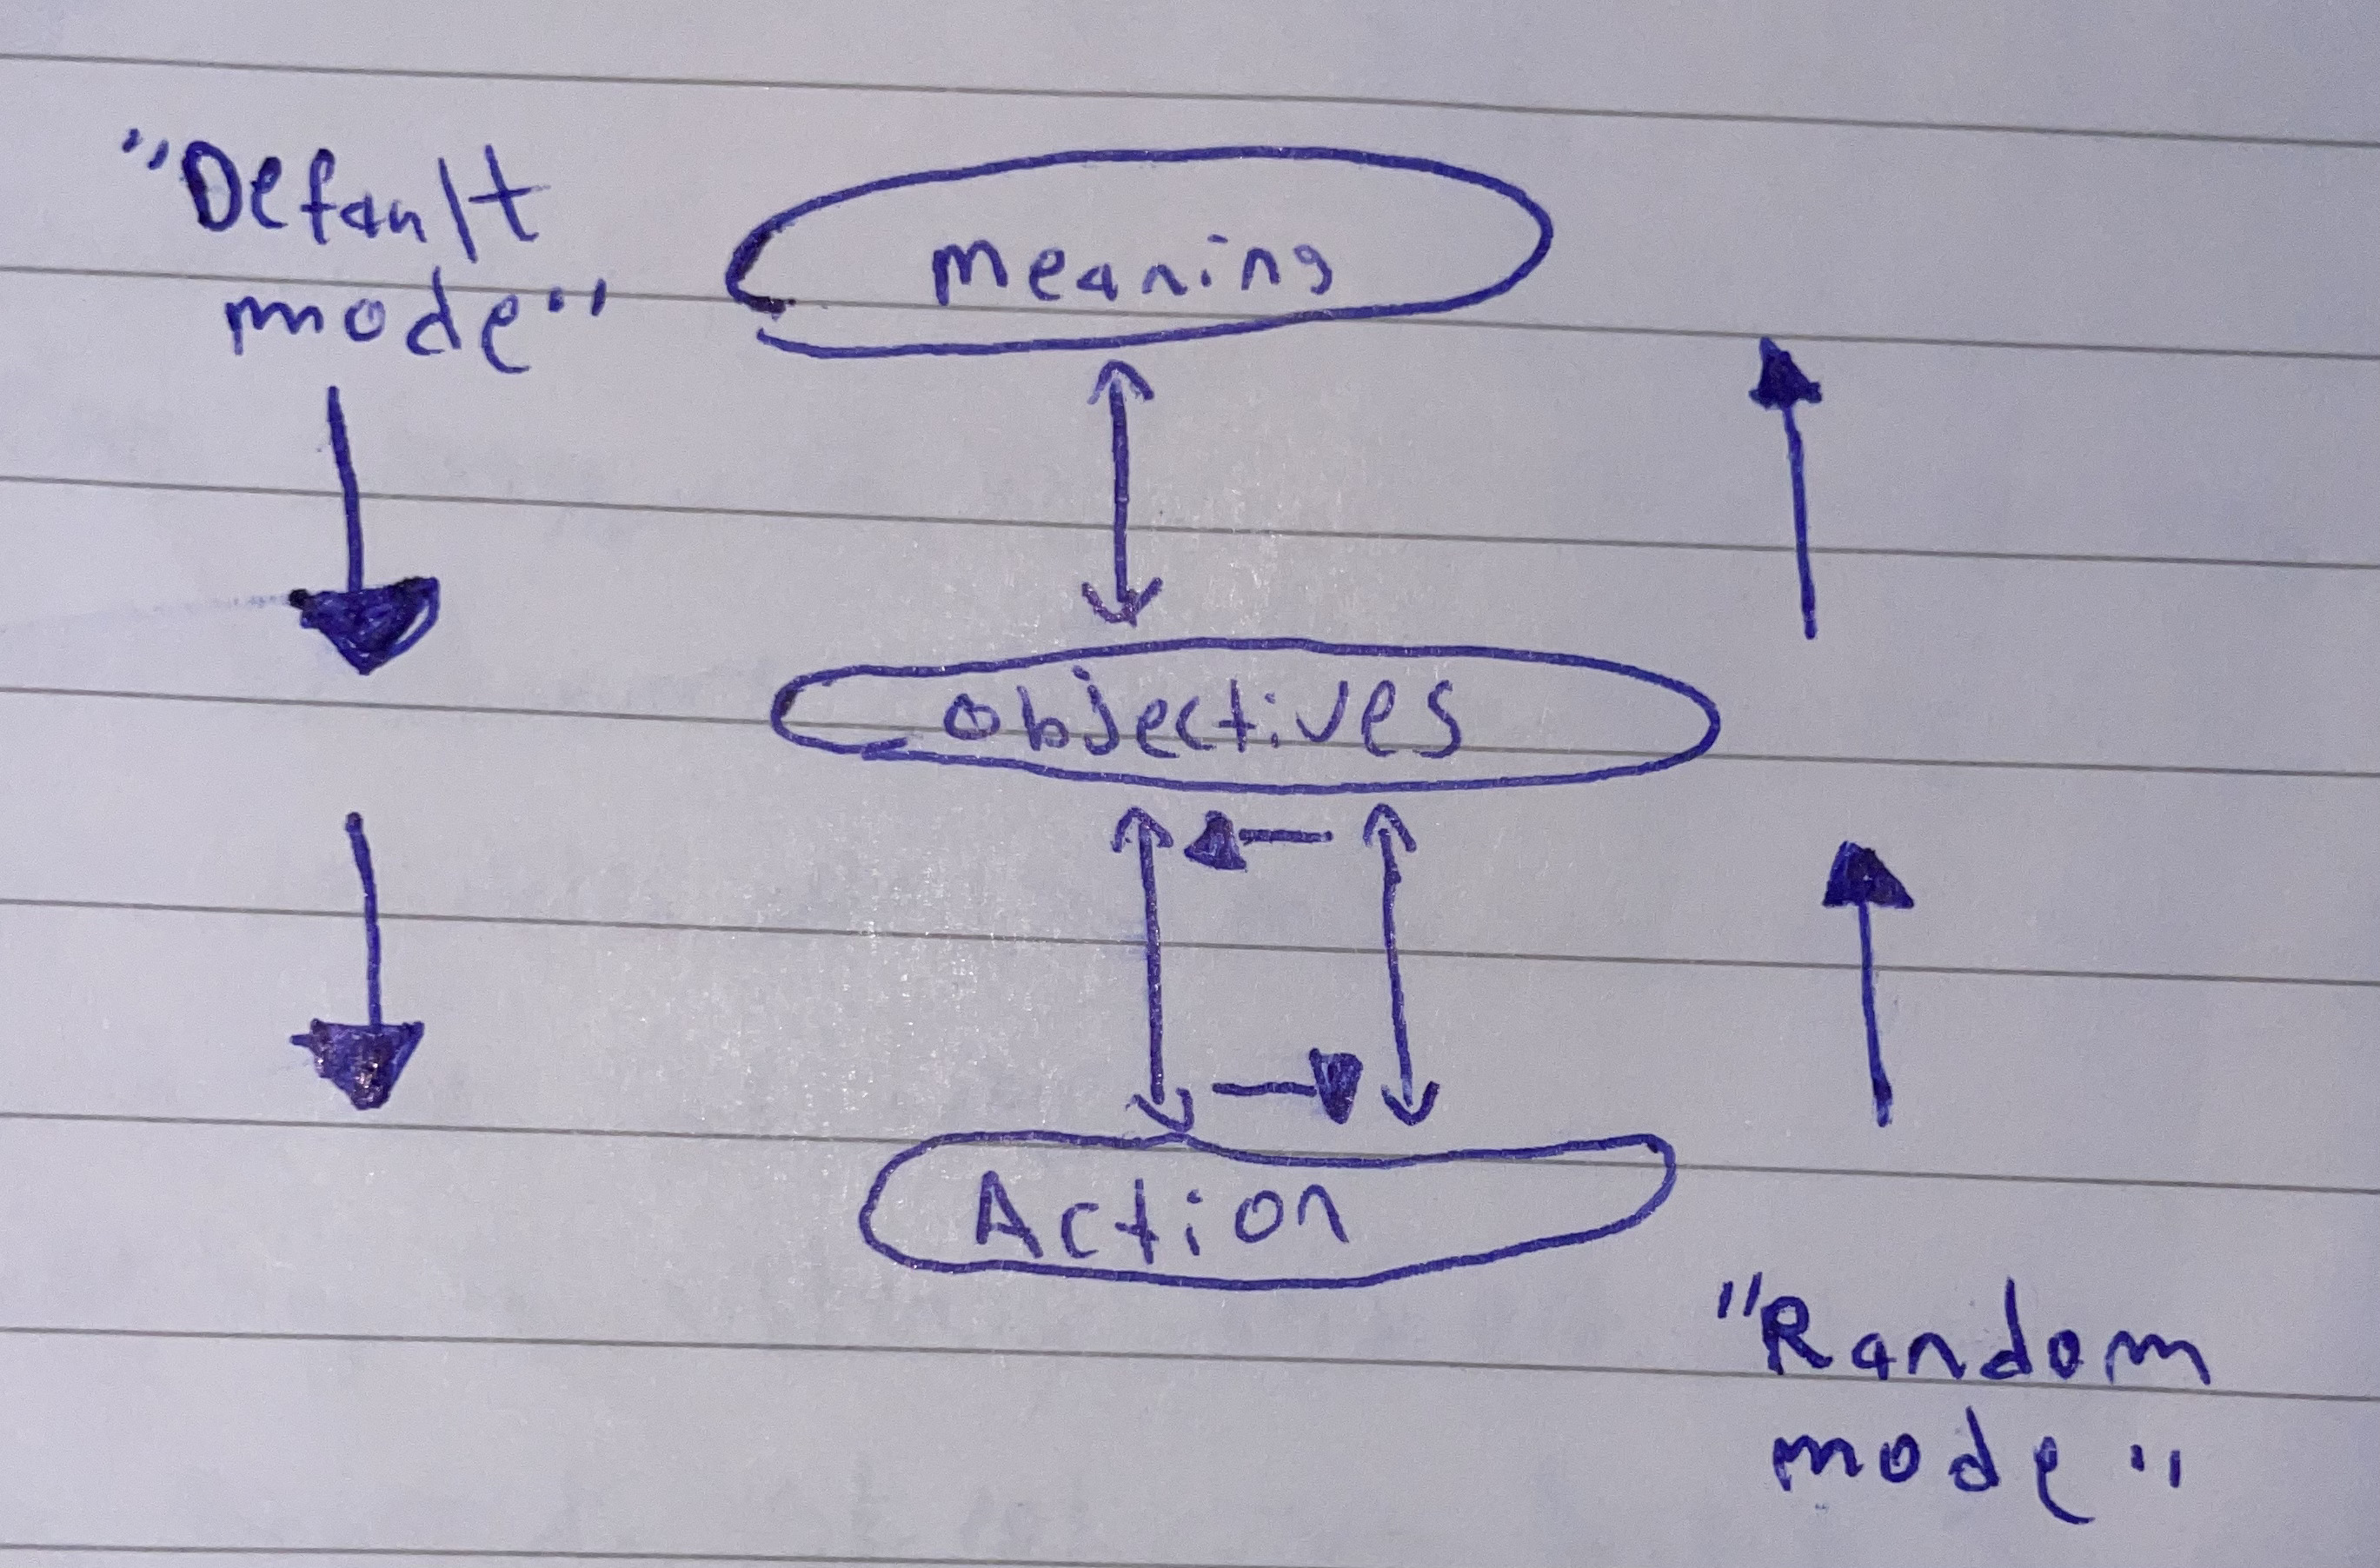 "Default
mode"
meaning
objectives
Action
"Random
mode"